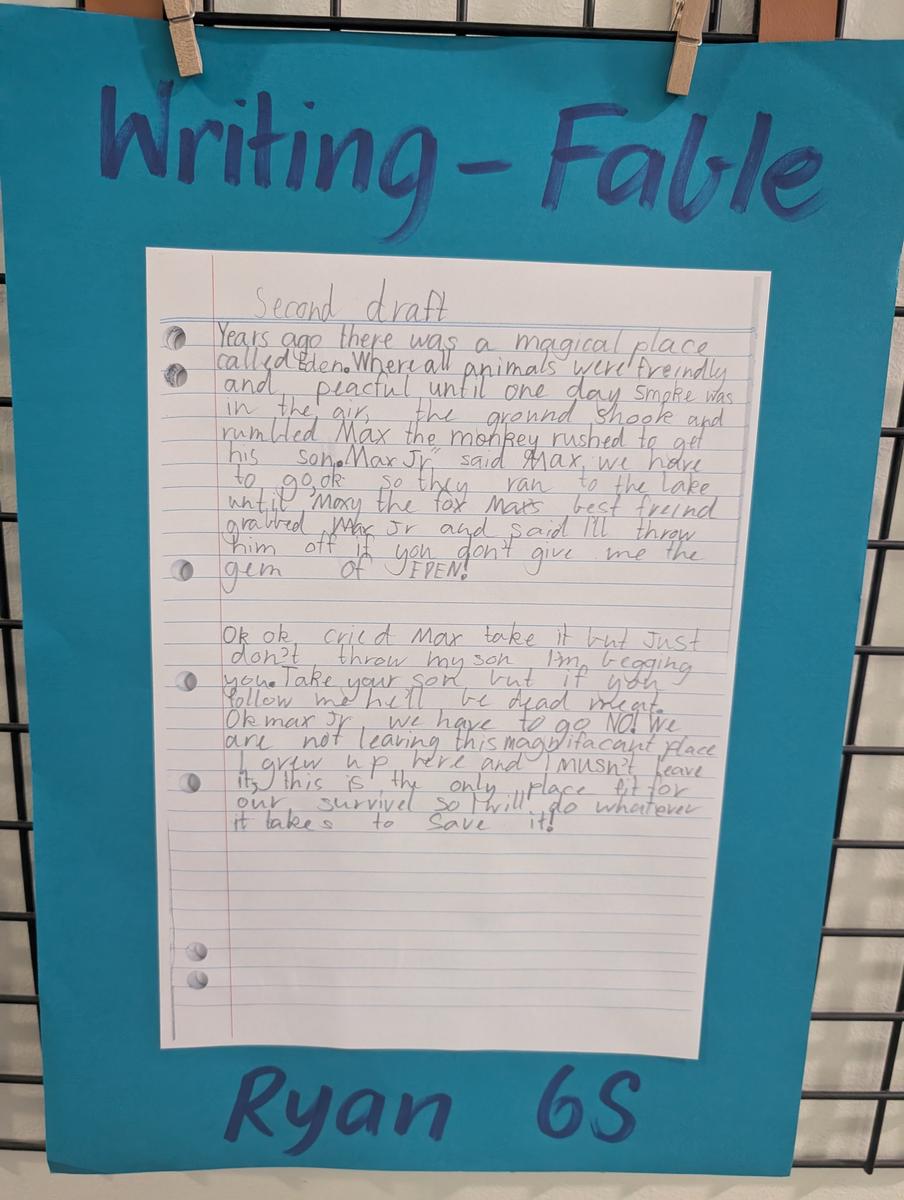 Writing - Fable
Second draft
Years ago there was a magical place
called Eden. Where all animals were freindly
and peacful until one day smoke was
in the air, the ground shook and
rumbled Max the monkey rushed to get
his son. Max Jr" said Max, we have
to go, ok so they ran to the lake
until Moxy the fox Max's best freind
grabbed Max Jr and said I'll throw
him off if you don't give me the
gem of EDEN!
Ok ok cried Max take it but Just
don't throw my son I'm begging
you. Take your son but if you
follow me he'll be dead meat.
Ok max Jr we have to go NO! We
are not leaving this magnifacant place
I grew up here and I musn't leave
it, this is the only place fit for
our survivel so I will do whatever
it takes to save it!
Ryan 6S